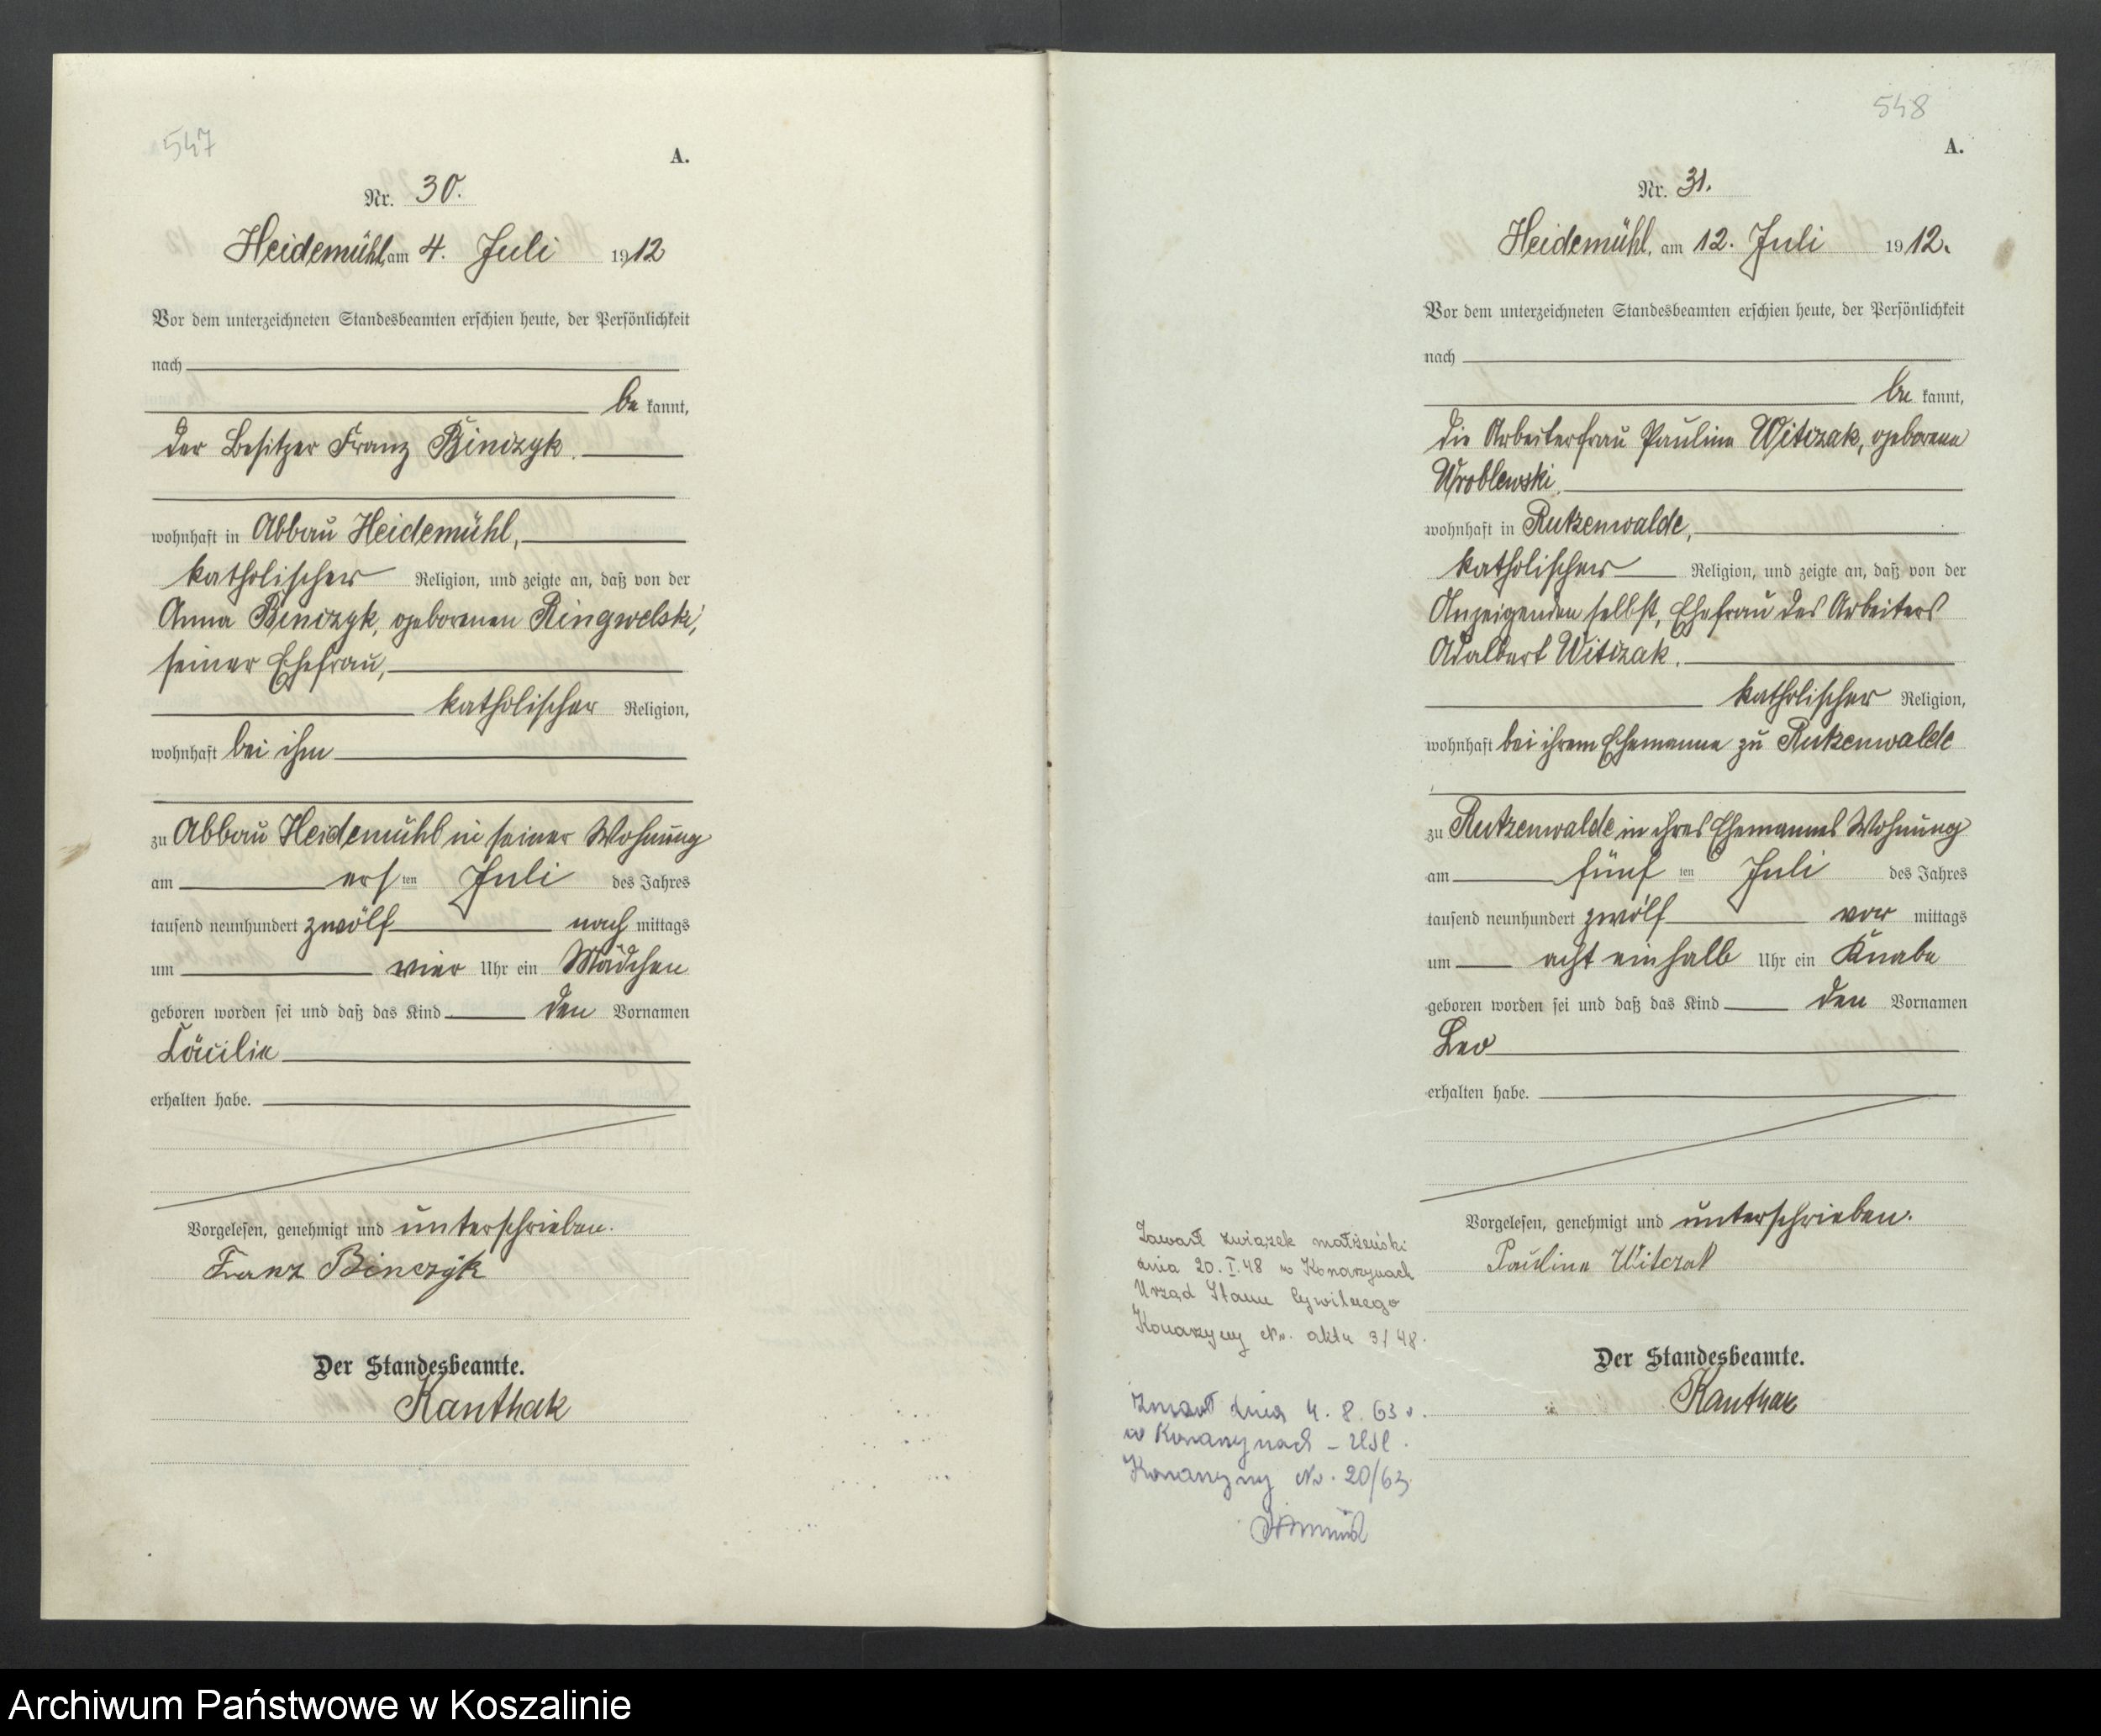 547
A.
Nr. 30.
Heidemühl, am 4. Juli 1912
Vor dem unterzeichneten Standesbeamten erschien heute, der Persönlichkeit
nach
be kannt,
der Besitzer Franz Binczyk.
wohnhaft in Abbau Heidemühl,
katholischer Religion, und zeigte an, daß von der
Anna Binczyk, geborenen Ringwelski,
seiner Ehefrau,
katholischer Religion,
wohnhaft bei ihm
zu Abbau Heidemühl in seiner Wohnung
am ers ten Juli des Jahres
tausend neunhundert zwölf nach mittags
um vier Uhr ein Mädchen
geboren worden sei und daß das Kind den Vornamen
Cäcilie
erhalten habe.
Vorgelesen, genehmigt und unterschrieben.
Franz Binczyk
Der Standesbeamte.
Kanthak
548
A.
Nr. 31.
Heidemühl, am 12. Juli 1912.
Vor dem unterzeichneten Standesbeamten erschien heute, der Persönlichkeit
nach
be kannt,
die Arbeiterfrau Pauline Witczak, geborene
Wroblewski,
wohnhaft in Rutzenwalde,
katholischer Religion, und zeigte an, daß von der
Anzeigenden selbst, Ehefrau des Arbeiters
Adalbert Witczak,
katholischer Religion,
wohnhaft bei ihrem Ehemanne zu Rutzenwalde
zu Rutzenwalde in ihres Ehemannes Wohnung
am fünf ten Juli des Jahres
tausend neunhundert zwölf vor mittags
um acht einhalb Uhr ein Knabe
geboren worden sei und daß das Kind den Vornamen
Leo
erhalten habe.
Vorgelesen, genehmigt und unterschrieben.
Pauline Witczak
Der Standesbeamte.
Kanthak
Zawarł związek małżeński
dnia 20.I.48 w Konarzynach
Urząd Stanu Cywilnego
Konarzyny Nr. aktu 3/48.
Zmarł dnia 4. 8. 63 r.
w Konarzynach - USC.
Konarzyny Nr. 20/63
Archiwum Państwowe w Koszalinie